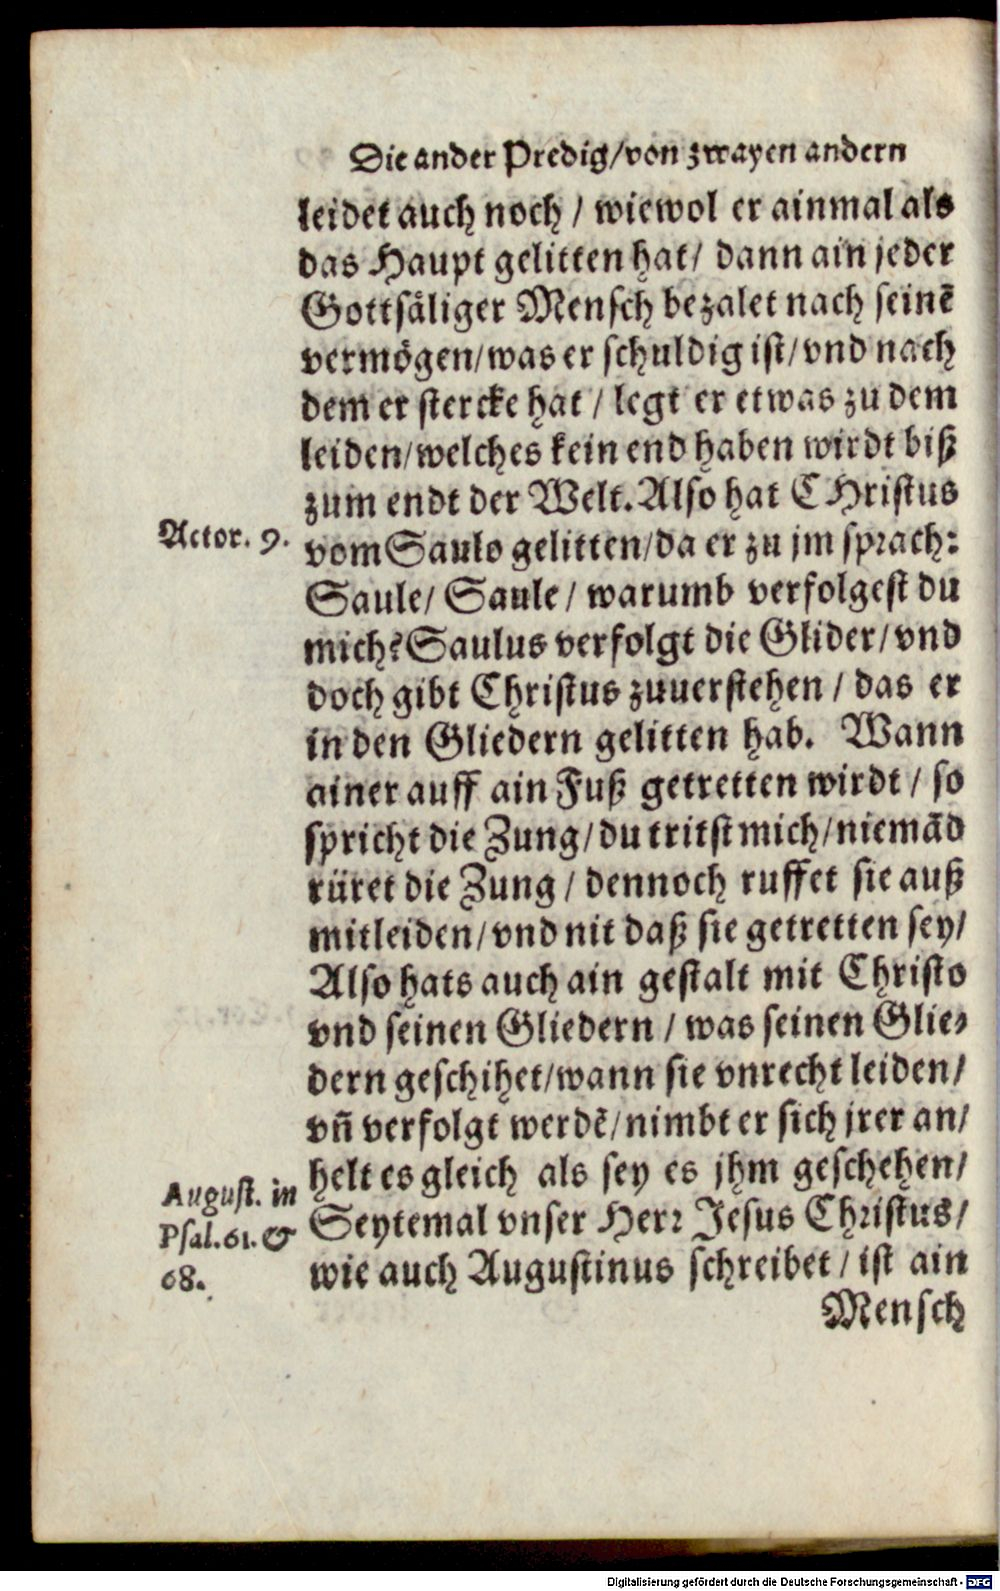 Die ander Predig/von zwayen andern
leidet auch noch / wiewol er ainmal als
das Haupt gelitten hat/ dann ain jeder
Gottsäliger Mensch bezalet nach seinẽ
vermögen/was er schuldig ist/vnd nach
dem er stercke hat / legt er etwas zu dem
leiden/welches kein end haben wirdt biß
zum endt der Welt. Also hat CHristus
Actor. 9.
vom Saulo gelitten/da er zu jm sprach:
Saule/ Saule / warumb verfolgest du
mich? Saulus verfolgt die Glider/vnd
doch gibt Christus zuuerstehen / das er
in den Gliedern gelitten hab. Wann
ainer auff ain Fuß getretten wirdt / so
spricht die Zung/du tritst mich/niemãd
rüret die Zung / dennoch ruffet sie auß
mitleiden/vnd nit daß sie getretten sey/
Also hats auch ain gestalt mit Christo
vnd seinen Gliedern / was seinen Glie-
dern geschihet/wann sie vnrecht leiden/
vñ verfolgt werdẽ/nimbt er sich jrer an/
helt es gleich als sey es jhm geschehen/
August. in
Psal. 61. &
68.
Seytemal vnser Herr Jesus Christus/
wie auch Augustinus schreibet / ist ain
Mensch
Digitalisierung gefördert durch die Deutsche Forschungsgemeinschaft - DFG